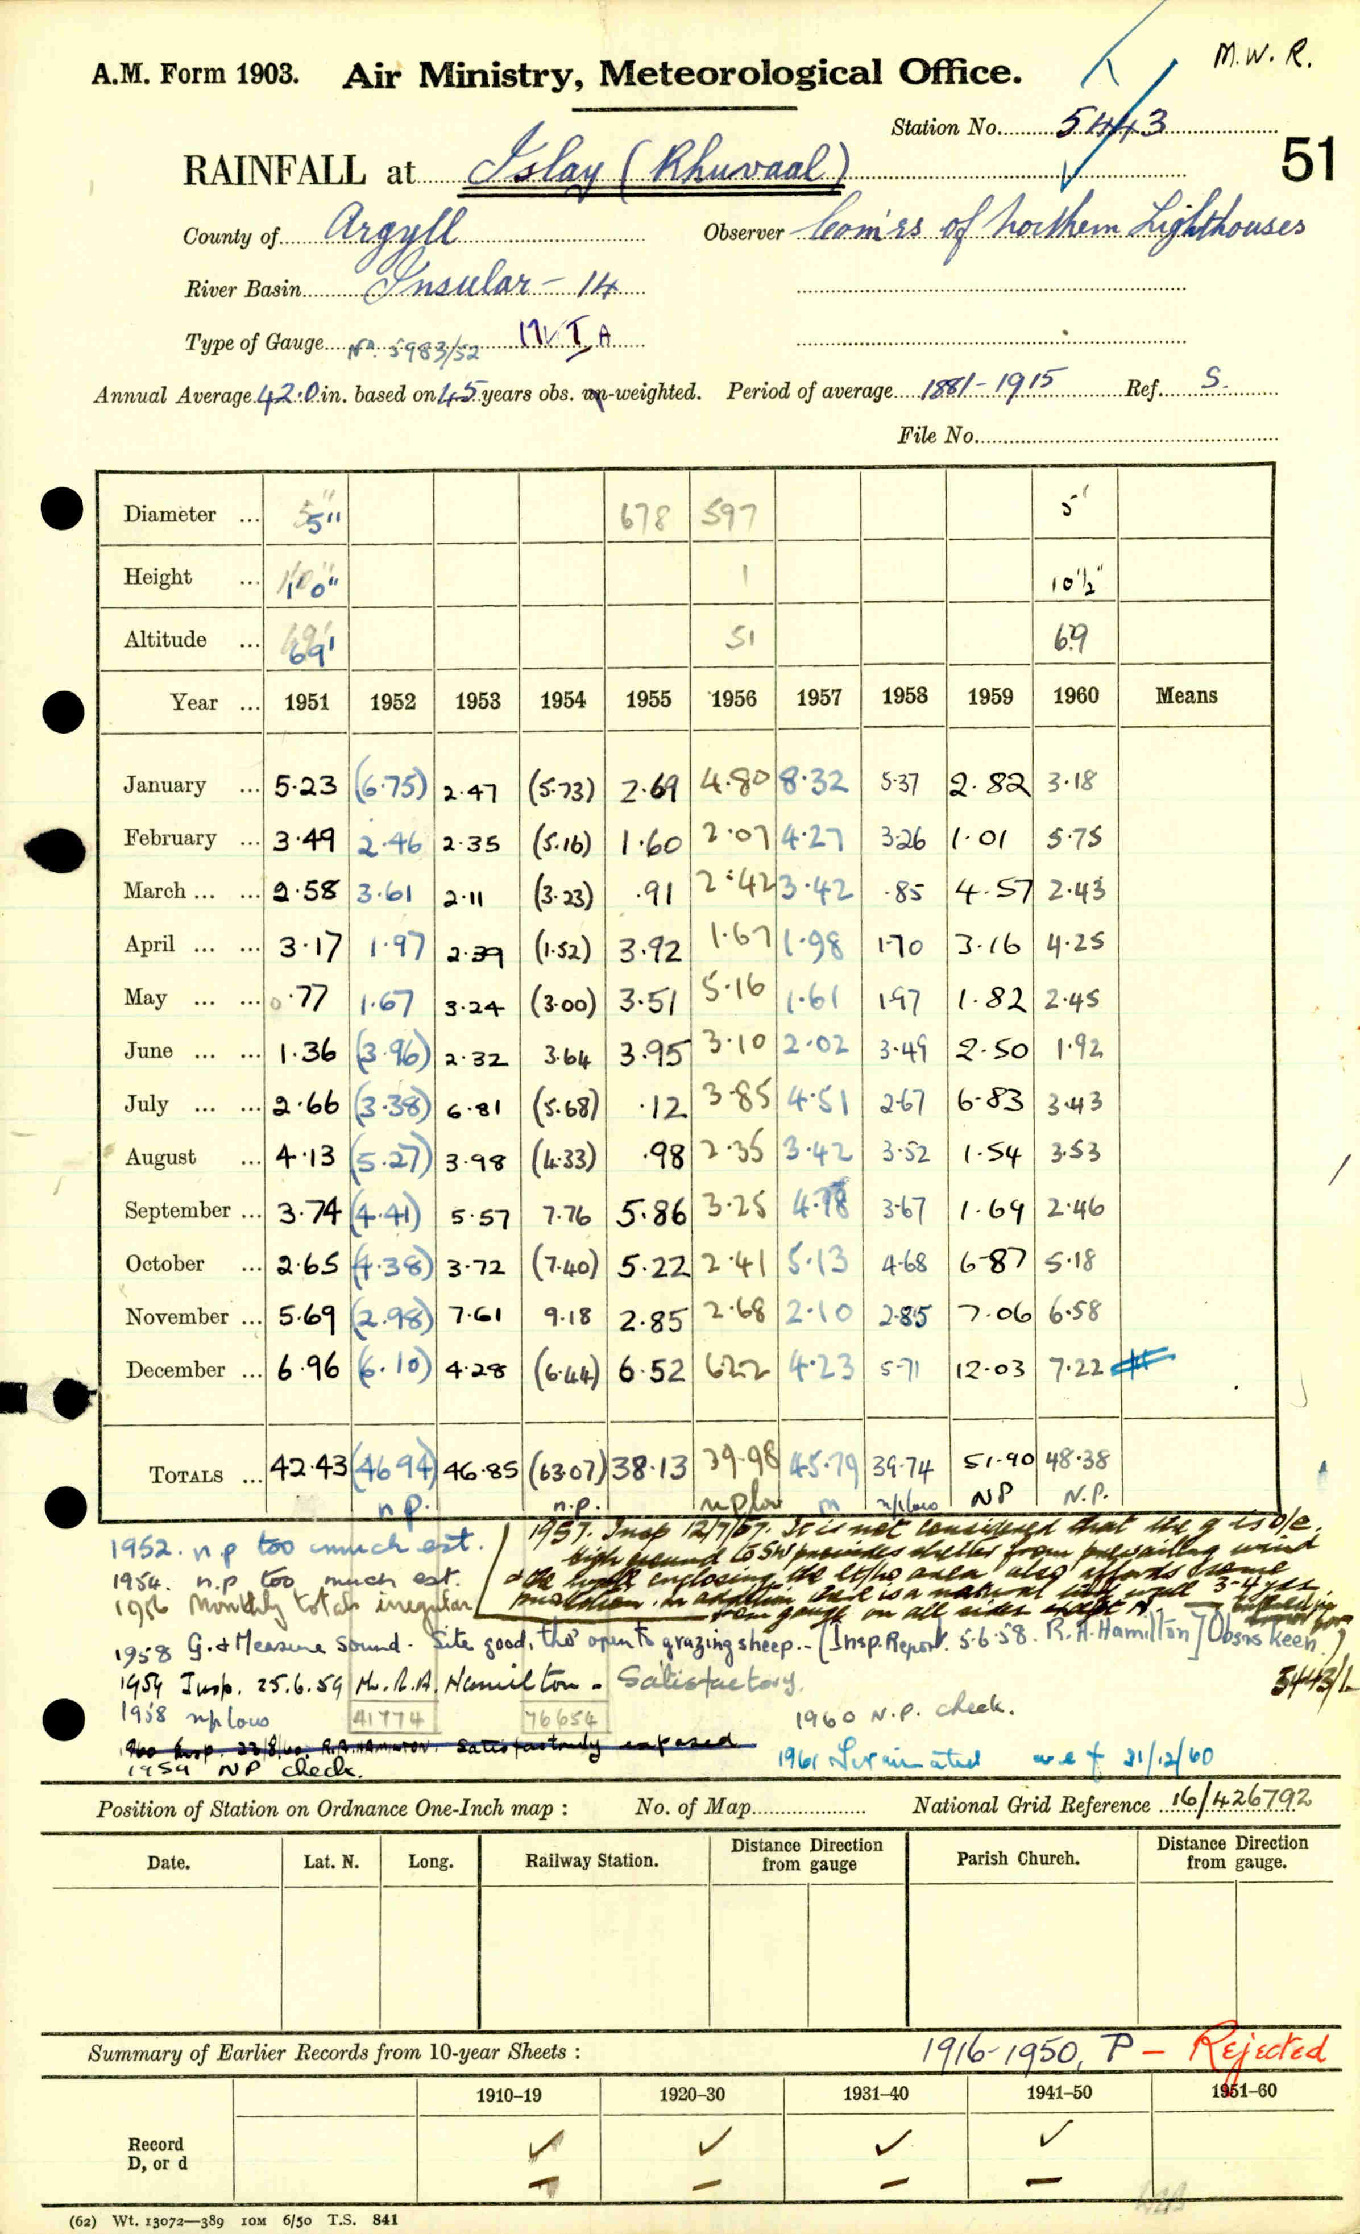 M.W.R.
A.M. Form 1903. Air Ministry, Meteorological Office.
Station No. 5443
51
RAINFALL at Islay (Rhuvaal)
County of Argyll Observer Com'rs of Northern Lighthouses
River Basin Insular - 14
Type of Gauge No. 5983/52
Annual Average 42.0 in. based on 45 years obs. un-weighted. Period of average 1881-1915 Ref. S.
File No.
Diameter ... 5" 678 597 5"
Height ... 1'0" 1 10½"
Altitude ... 69' 51 69
Year ... 1951 1952 1953 1954 1955 1956 1957 1958 1959 1960 Means
January ... 5.23 (6.75) 2.47 (5.73) 2.69 4.80 8.32 5.37 2.82 3.18
February ... 3.49 2.46 2.35 (5.16) 1.60 2.07 4.27 3.26 1.01 5.75
March ... ... 2.58 3.61 2.11 (3.23) .91 2.42 3.42 .85 4.57 2.43
April ... ... 3.17 1.97 2.39 (1.52) 3.92 1.67 1.98 1.70 3.16 4.25
May ... ... 0.77 1.67 3.24 (3.00) 3.51 5.16 1.61 1.97 1.82 2.45
June ... ... 1.36 (3.96) 2.32 3.64 3.95 3.10 2.02 3.49 2.50 1.92
July ... ... 2.66 (3.38) 6.81 (5.68) .12 3.85 4.51 2.67 6.83 3.43
August ... 4.13 (5.27) 3.98 (4.33) .98 2.35 3.42 3.52 1.54 3.53
September ... 3.74 (4.41) 5.57 7.76 5.86 3.25 4.78 3.67 1.69 2.46
October ... 2.65 (4.38) 3.72 (7.40) 5.22 2.41 5.13 4.68 6.87 5.18
November ... 5.69 (2.98) 7.61 9.18 2.85 2.68 2.10 2.85 7.06 6.58
December ... 6.96 (6.10) 4.28 (6.44) 6.52 6.22 4.23 5.71 12.03 7.22
TOTALS ... 42.43 (46.94) 46.85 (63.07) 38.13 39.98 45.79 39.74 51.90 48.38
n.p. n.p. n p low m n p low NP N.P.
1957. Insp 12/7/57. It is not considered that the g is o/e.
high ground to SW provides shelter from prevailing wind
& the wall enclosing the area also affords some
protection. In addition there is a natural wall 3-4 yds
from gauge on all sides except N.
1952. n p too much est.
1954. n.p. too much est.
1956 Monthly totals irregular
1958 G. & Measure sound. Site good, tho' open to grazing sheep. - [Insp. Report. 5.6.58. R.A. Hamilton] Obsns keen
1959 Insp. 25.6.59 Mr. R.A. Hamilton - Satisfactory.
5443/1
1958 n p low 41774 76654 1960 N.P. check.
1960 Insp. 23/8/60. R.A. HAMILTON. Satisfactorily exposed
1959 NP check. 1961 Terminated w e f 31/12/60
Position of Station on Ordnance One-Inch map : No. of Map National Grid Reference 16/426792
Date. Lat. N. Long. Railway Station. Distance from gauge Direction Parish Church. Distance from gauge. Direction
Summary of Earlier Records from 10-year Sheets : 1916-1950, P - Rejected
1910–19 1920–30 1931–40 1941–50 1951–60
Record ✓ ✓ ✓ ✓
D, or d – – – –
(62) Wt. 13072—389 10M 6/50 T.S. 841